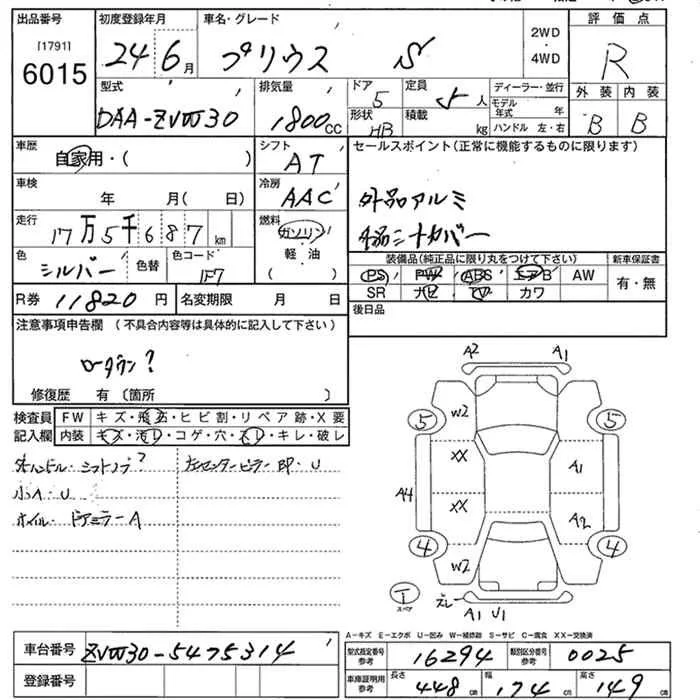 出品番号 初度登録年月 車名・グレード 2WD ・ 4WD 評価点
[1791]
6015 24 6月 プリウス S R
型式 排気量 ドア 5 定員 5人 ディーラー・並行 外装 内装
モデル年式 年
DAA-ZVW30 1800cc 形状 HB 積載 kg ハンドル 左・右 B B
車歴 自家用・( ) シフト AT セールスポイント(正常に機能するものに限ります)
車検 年 月( 日) 冷房 AAC 外品アルミ
走行 17万5千687km 燃料 ガソリン・軽油 ( )
色 シルバー 色替 色コード 1F7
装備品(純正品に限り丸をつけて下さい) 新車保証書
PS PW ABS エアB AW 有・無
SR ナビ TV カワ
R券 11820円 名変期限 月 日 後日品
注意事項申告欄 (不具合内容等は具体的に記入して下さい)
ローダウン?
修復歴 有 〔箇所 〕
検査員 FW キズ・飛石・ヒビ割・リペア跡・X要
記入欄 内装 キズ・汚レ・コゲ・穴・スレ・キレ・破レ
ハンドル・シフトノブ? 左センターピラー部・U
小A・U
ホイル・ドアミラーA
A2 A1
5 W2 5
XX A1
A4
XX A2
4 W2 4
スレ
A1 U1
スペア
A-キズ E-エクボ U-凹み W-補修跡 S-サビ C-腐食 XX-交換済
車台番号 ZVW30-5475314
登録番号
型式指定番号 参考 16294 類別区分番号 参考 0025
車庫証明用 参考 長さ 448cm 幅 174cm 高さ 149cm